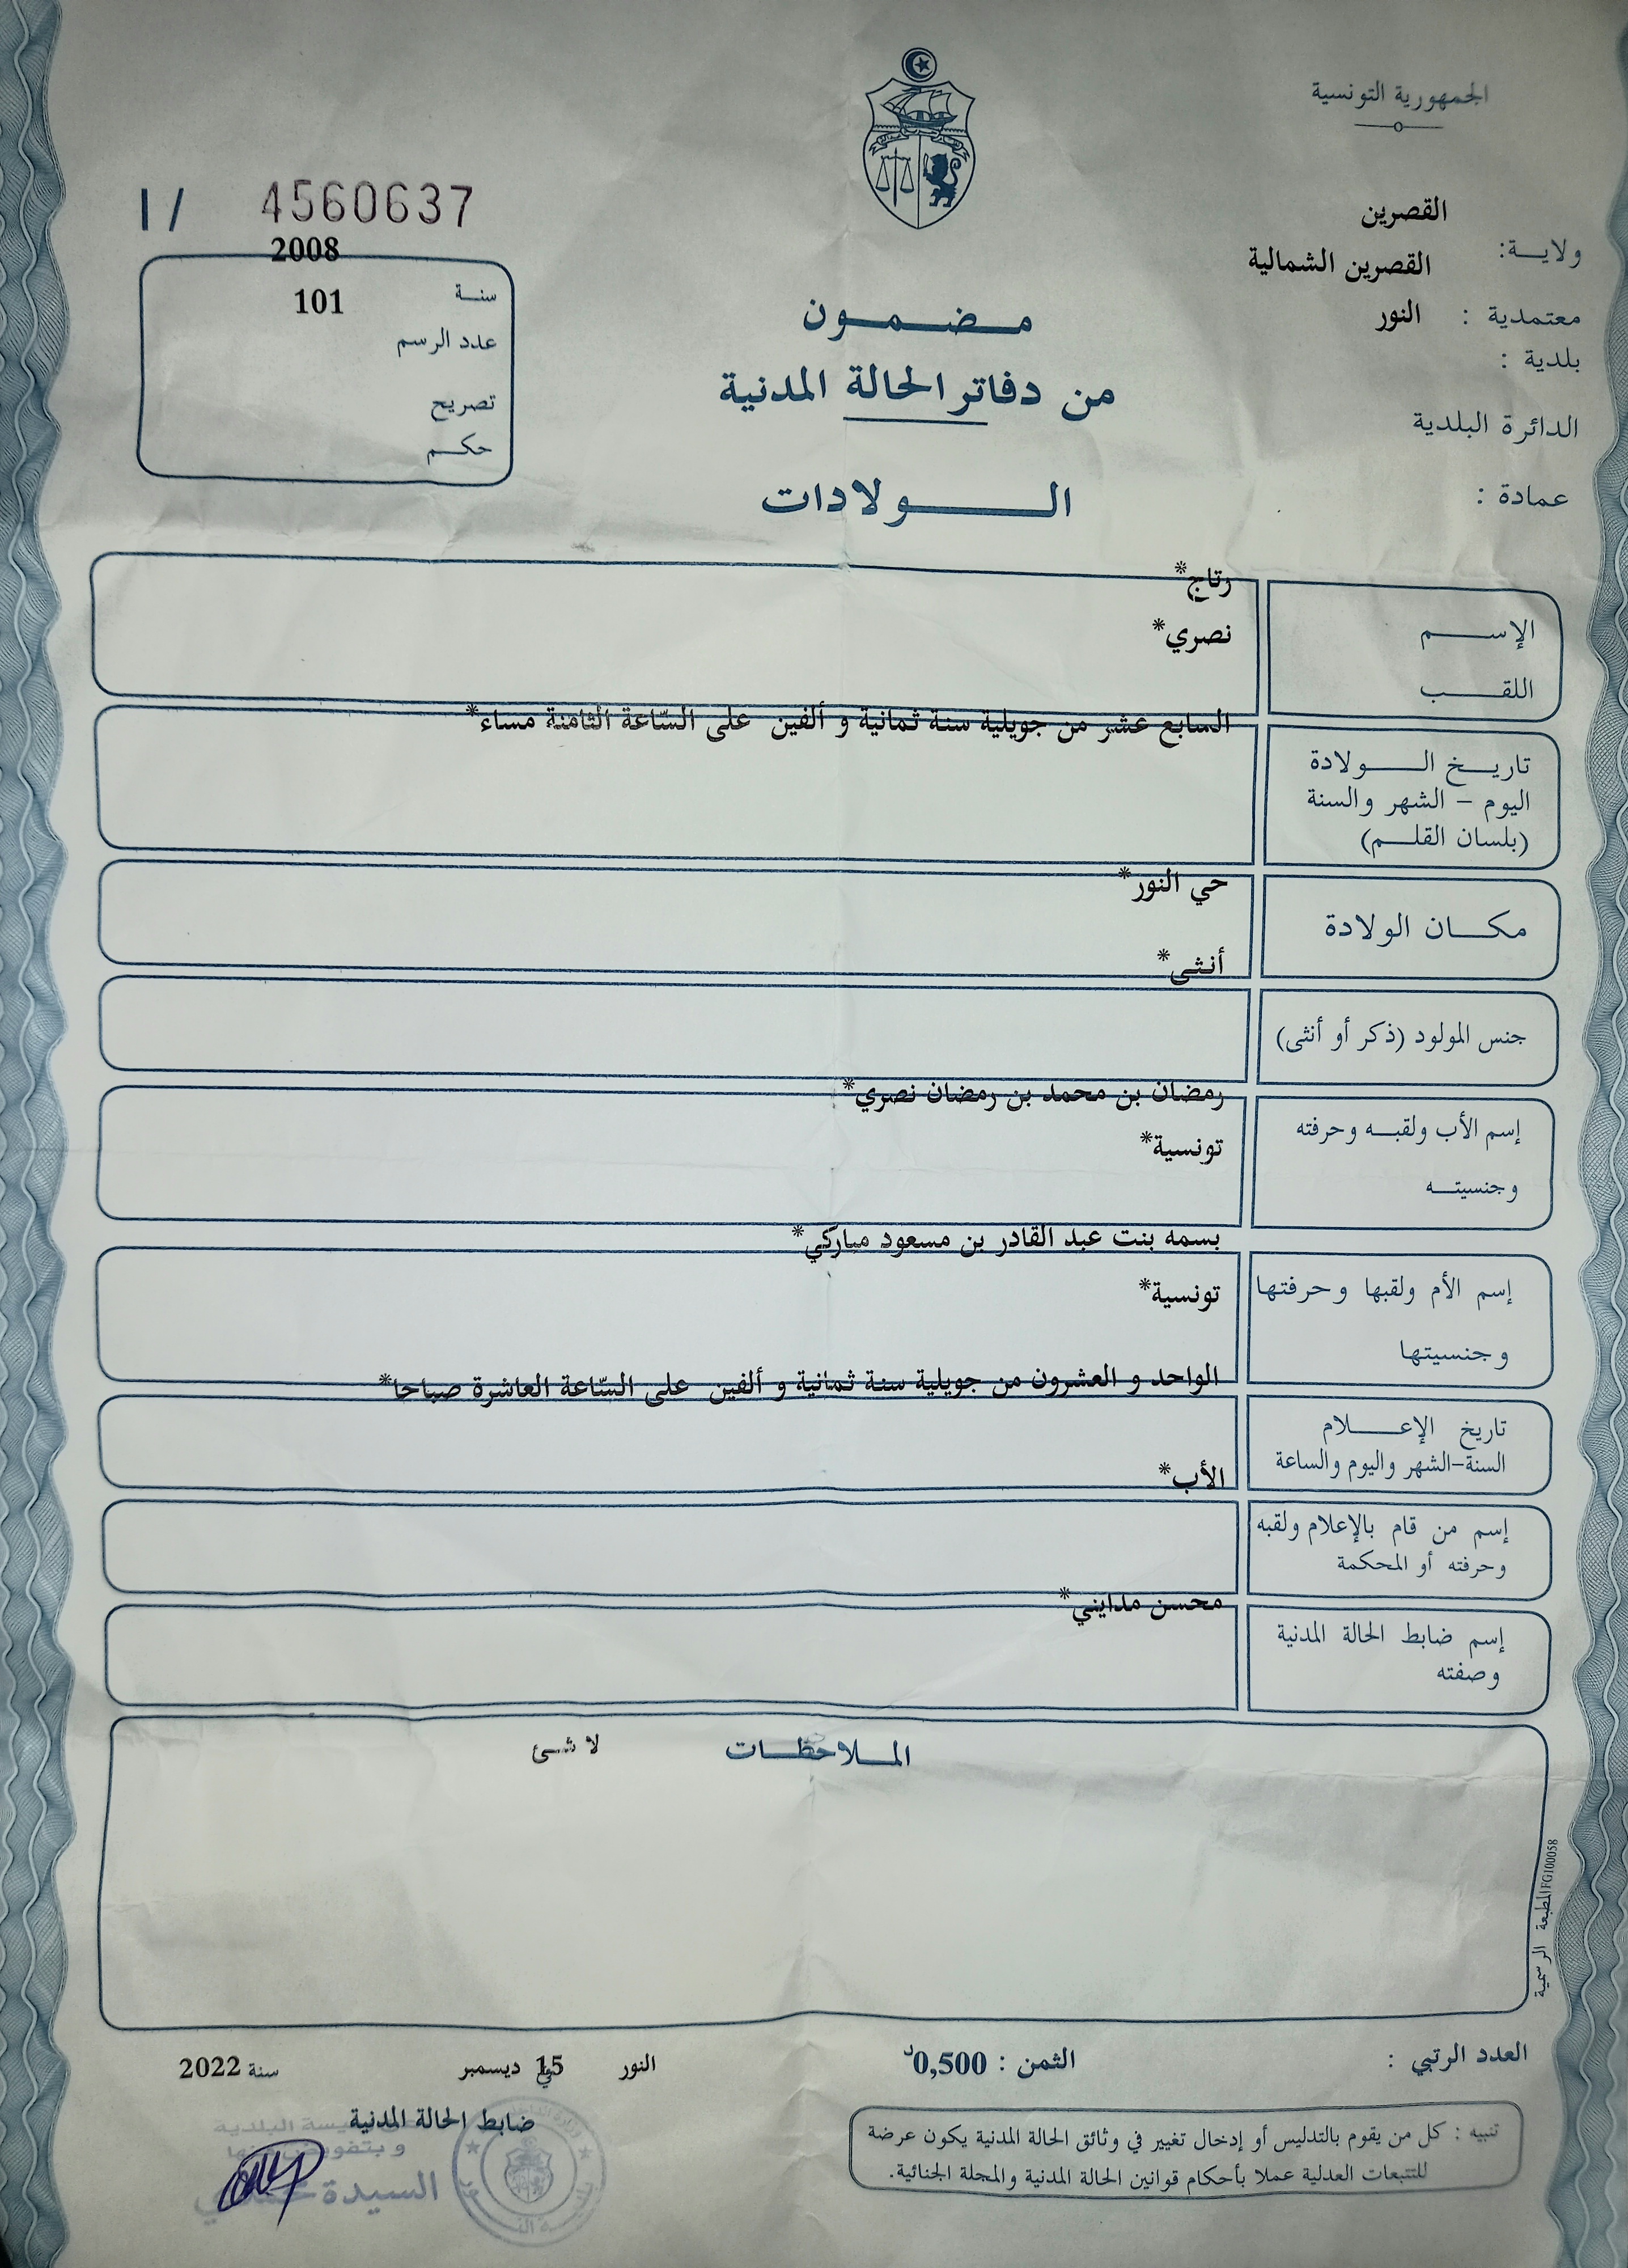 الجمهورية التونسية
I / 4560637
ولايـــة: القصرين
معتمدية : القصرين الشمالية
بلدية : النور
الدائرة البلدية
عمادة :
2008
سنـــة
101
عدد الرسم
تصريح
حكـــم
مـــضـــمـــون
من دفاتر الحالة المدنية
الـــولادات
الإســـم رتاج*
اللقـــب نصري*
تاريـــخ الـــولادة
اليوم – الشهر والسنة
(بلسان القلـــم)
السابع عشر من جويلية سنة ثمانية و ألفين على السّاعة الثامنة مساء*
مكـــان الولادة
حي النور*
جنس المولود (ذكر أو أنثى)
أنثى*
إسم الأب ولقبـــه وحرفته
رمضان بن محمد بن رمضان نصري*
وجنسيتـــه
تونسية*
إسم الأم ولقبها وحرفتها
بسمه بنت عبد القادر بن مسعود مباركي*
وجنسيتها
تونسية*
تاريخ الإعـــلام
السنة-الشهر واليوم والساعة
الواحد و العشرون من جويلية سنة ثمانية و ألفين على السّاعة العاشرة صباحا*
إسم من قام بالإعلام ولقبه
وحرفته أو المحكمة
الأب*
إسم ضابط الحالة المدنية
وصفته
محسن مدايني*
المـــلاحظـــات
لا شئ
المطبعة الرسمية IFG100058
العدد الرتبي :
الثمن : 0,500د
النور في 15 ديسمبر سنة 2022
ضابط الحالة المدنية
البلدية
و بتفويض منها
السيدة
تنبيه : كل من يقوم بالتدليس أو إدخال تغيير في وثائق الحالة المدنية يكون عرضة
للتتبعات العدلية عملا بأحكام قوانين الحالة المدنية والمجلة الجنائية.